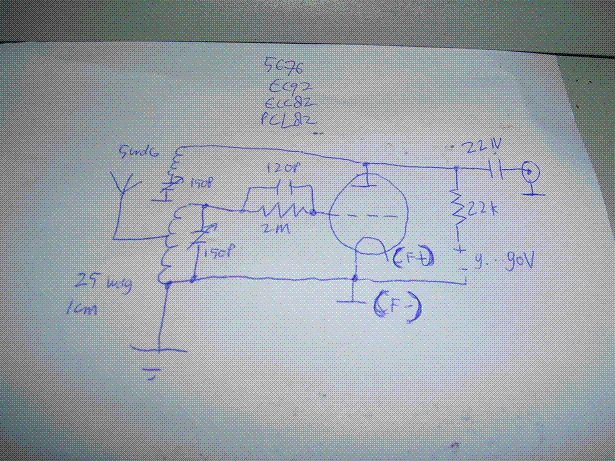 5C76
EC92
ECC82
PCL82
5wdg
190P
120P
2M
190P
22N
22k
+
9...90V
-
(F+)
(F-)
25 wdg
1cm